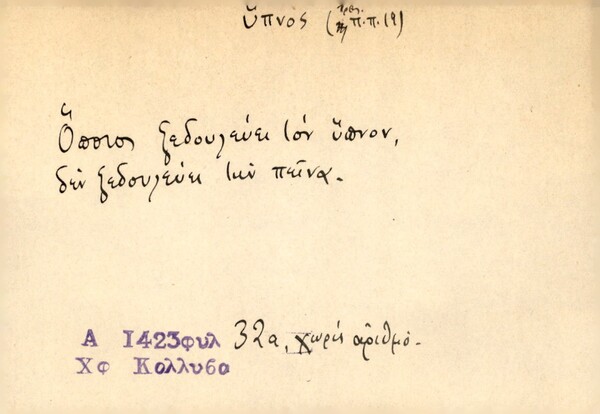 ὕπνος (βλ. π.π. 19)
Ὅποιος ξεδουλεύει τὸν ὕπνον,
δὲν ξεδουλεύει τὴν πεῖνα.
Α 1423φυλ 32α, χωρὶς ἀριθμό.
Χφ Κολλυβα